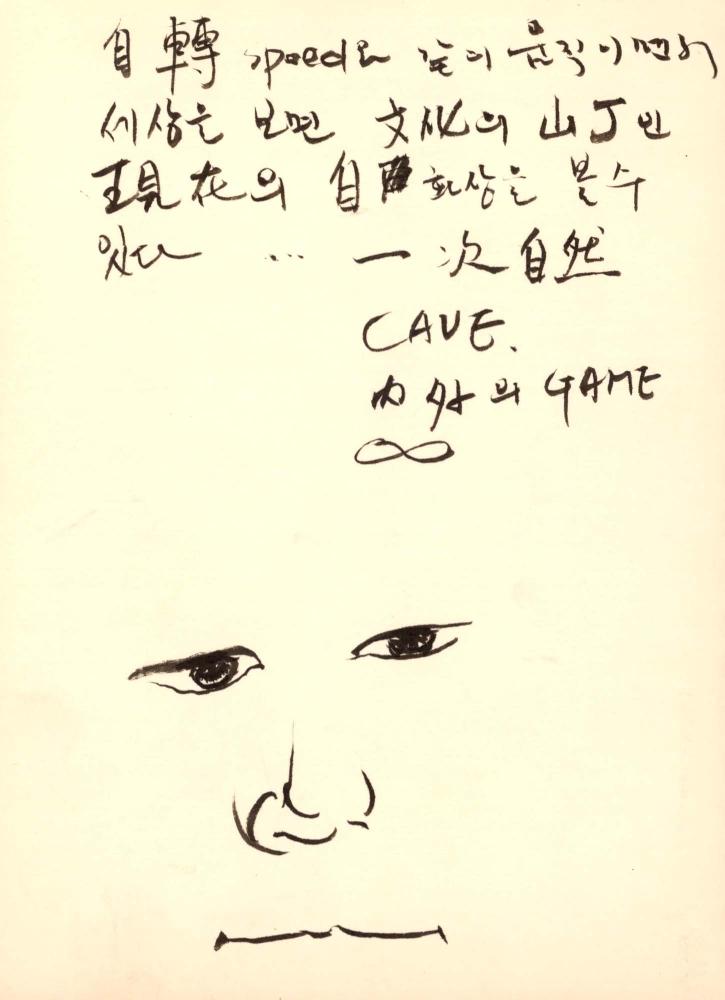 自轉 speed로 같이 움직이면서
세상을 보면 文化의 山丁인
現在의 自화상을 볼수
있다 ... 一次自然
CAVE.
内外의 GAME
∞